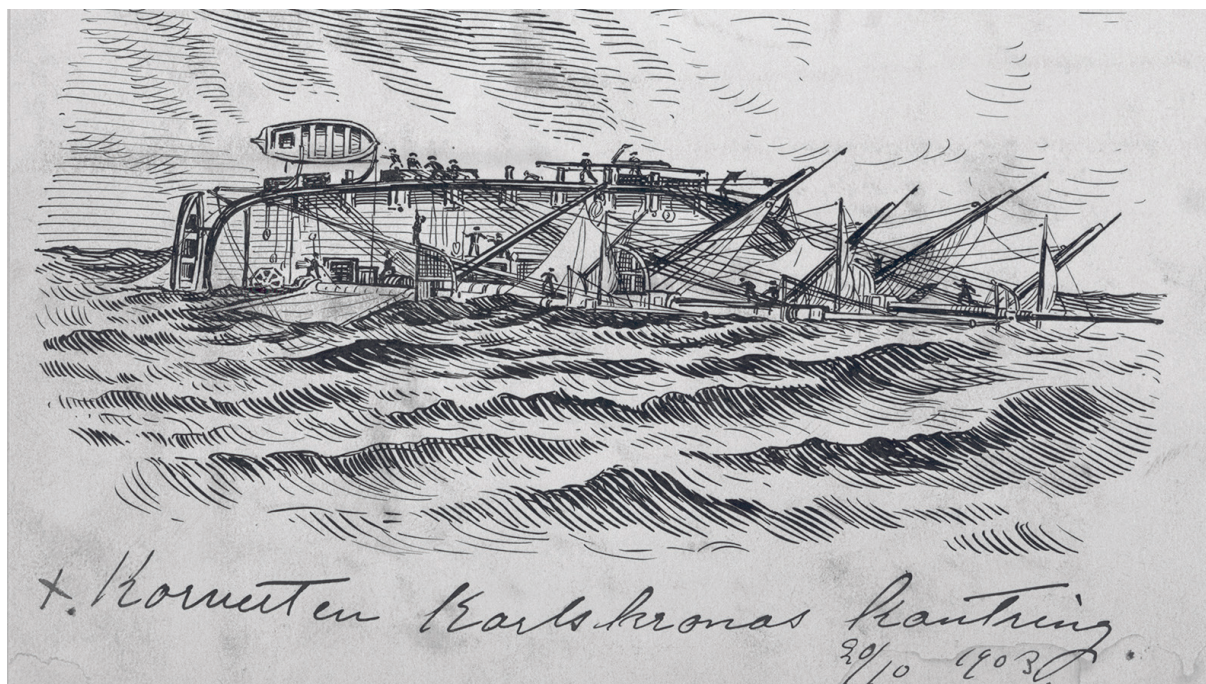 +. Korvetten Karlskronas kantring.
20/10 1903.